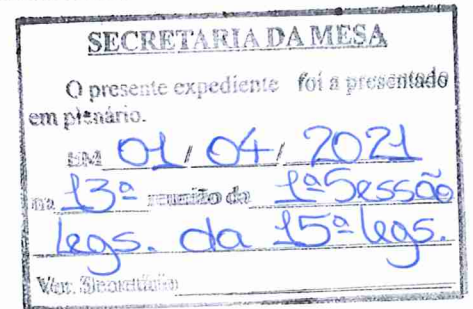 SECRETARIA DA MESA
O presente expediente foi a presentado
em plenário.
EM 01 / 04 / 2021
na 13ª reunião da 1ª Sessão
legs. da 15ª legs.
Ver. Secretário